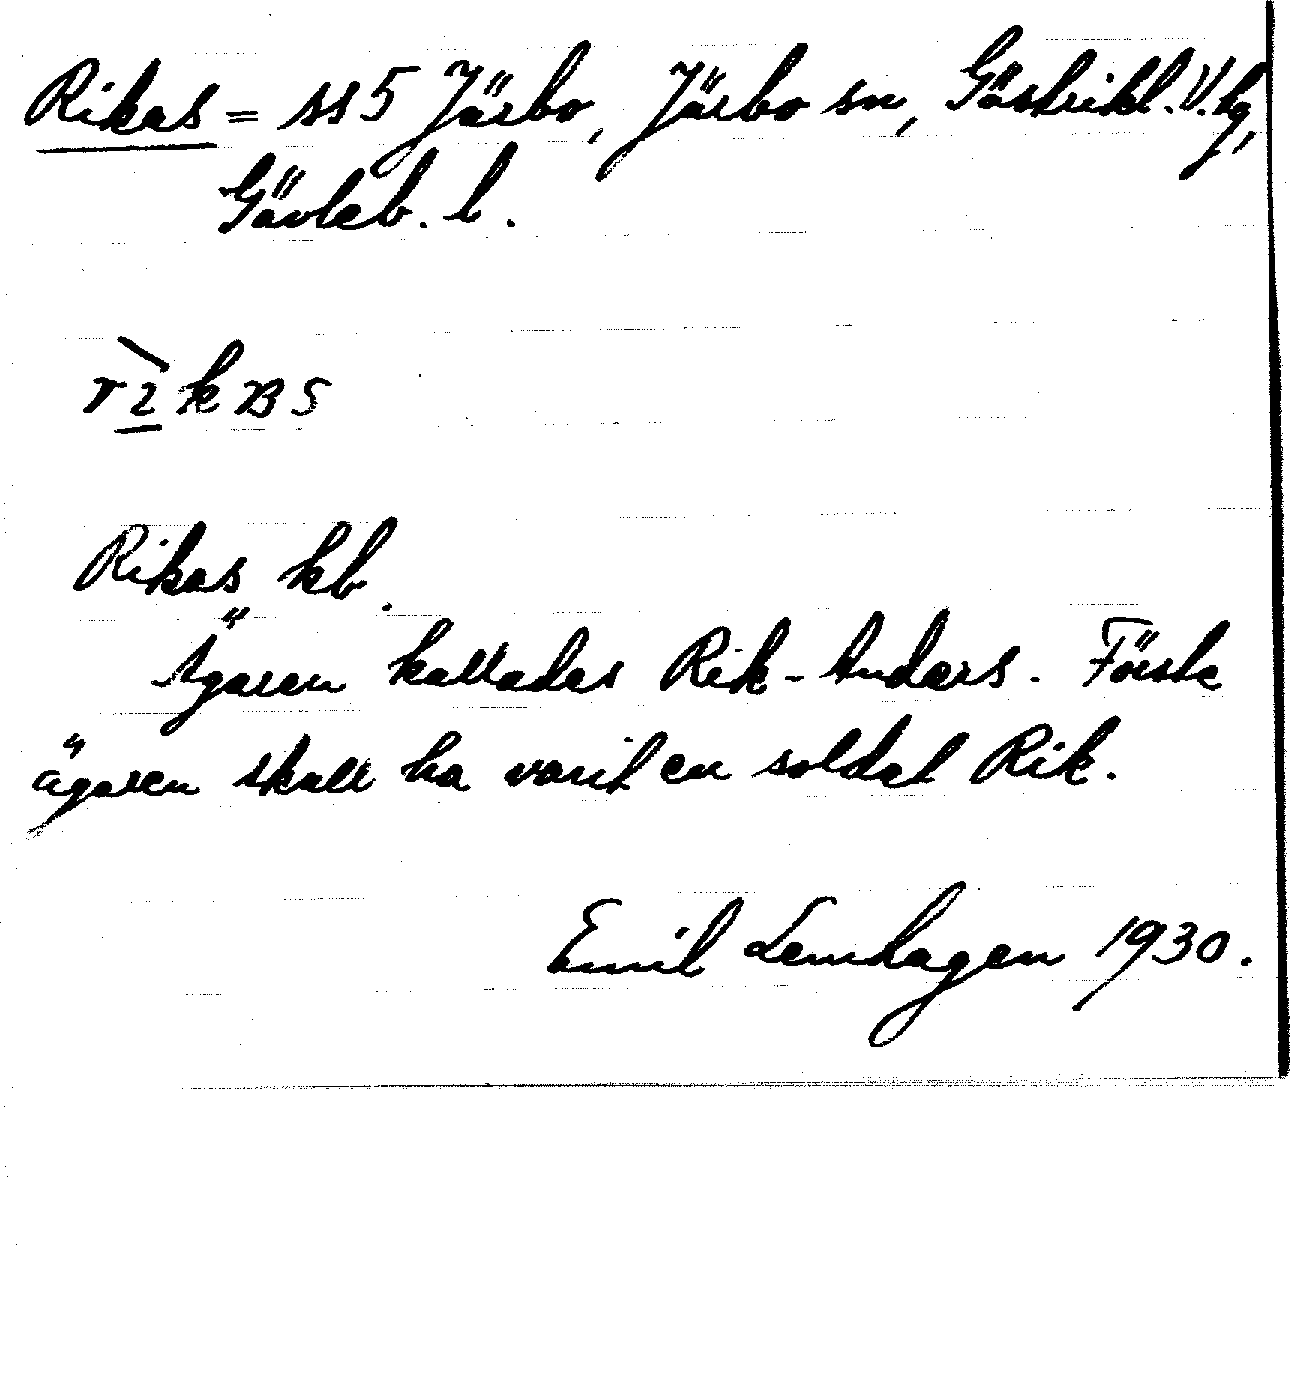 Rikas = ss 5 Järbo, Järbo sn, Gästrikl. V. tg,
Gävleb. l.
Rikas kb.
Ägaren kallades Rik-Anders. Förste
ägaren skall ha varit en soldat Rik.
Emil Lemhagen 1930.